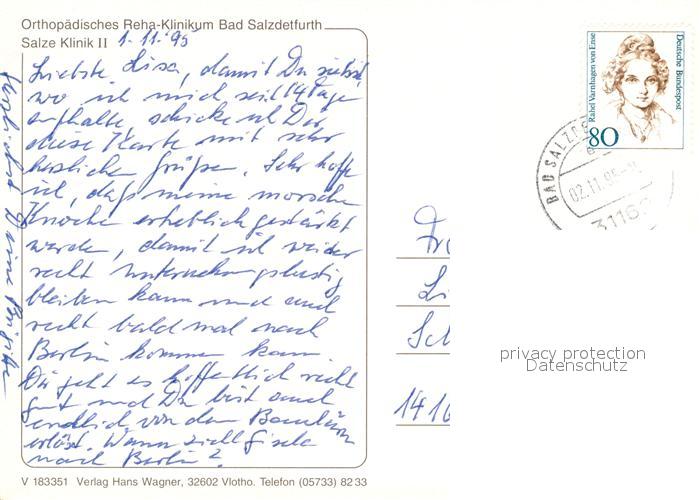 Orthopädisches Reha-Klinikum Bad Salzdetfurth
Salze Klinik II
1.11.95
Liebste Lisa, damit Du siehst,
wo ich mich seit 14 Tage
aufhalte schicke ich Dir
diese Karte mit sehr
herzlichen Grüßen. Sehr hoffe
ich, daß meine morschen
Knoche erheblich gestärkt
werden, damit ich weiter
recht unternehmungslustig
bleiben kann und auch
recht bald mal nach
Berlin kommen kann.
Dir geht es hoffentlich recht
gut und Du bist auch
endlich von dem Baulärm
erlöst. Wann zieht Gisela
nach Berlin?
Herzlichst Deine Brigitte
V 183351 Verlag Hans Wagner, 32602 Vlotho. Telefon (05733) 8233
Rahel Varnhagen von Ense
Deutsche Bundespost
80
BAD SALZD
02.11.95
31162
Fr
Li
Sch
1416
privacy protection
Datenschutz